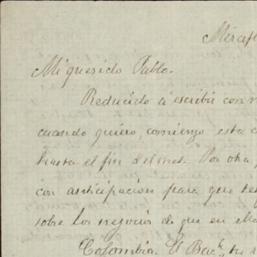 Mi querido Pablo.
Reducido á escribir con
cuando quiero, comienzo esta
hasta el fin del mes. Por otra
con anticipacion para que
sobre los negocios de que en
Colombia. El